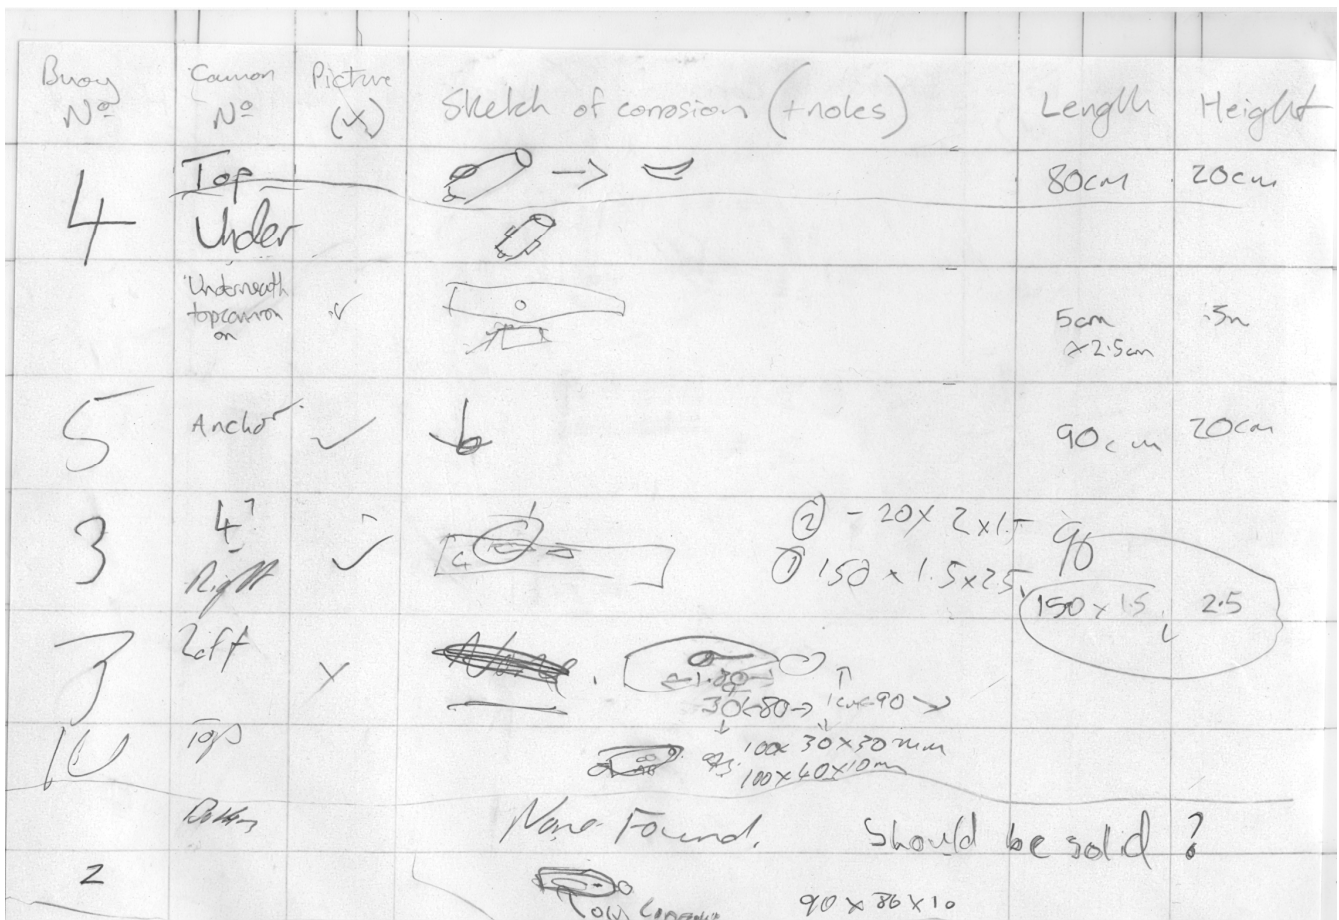 Buoy Nº Cannon Nº Picture (✓/x) Sketch of corrosion (+notes) Length Height
4 Top → 80cm 20cm
Under
Underneath top cannon on ✓ 5cm x 2.5cm
5 Anchor ✓ 90cm 20cm
3 4 Right ✓ ② - 20 x 2 x 1.5 90
① 150 x 1.5 x 2.5
150 x 1.5 2.5
3 Left x None.
1.80
30 80 → 90 →
10 Top 100 x 30 x 30mm
100 x 40 x 10mm
Bottom None Found. Should be solid?
2
90 x 86 x 10